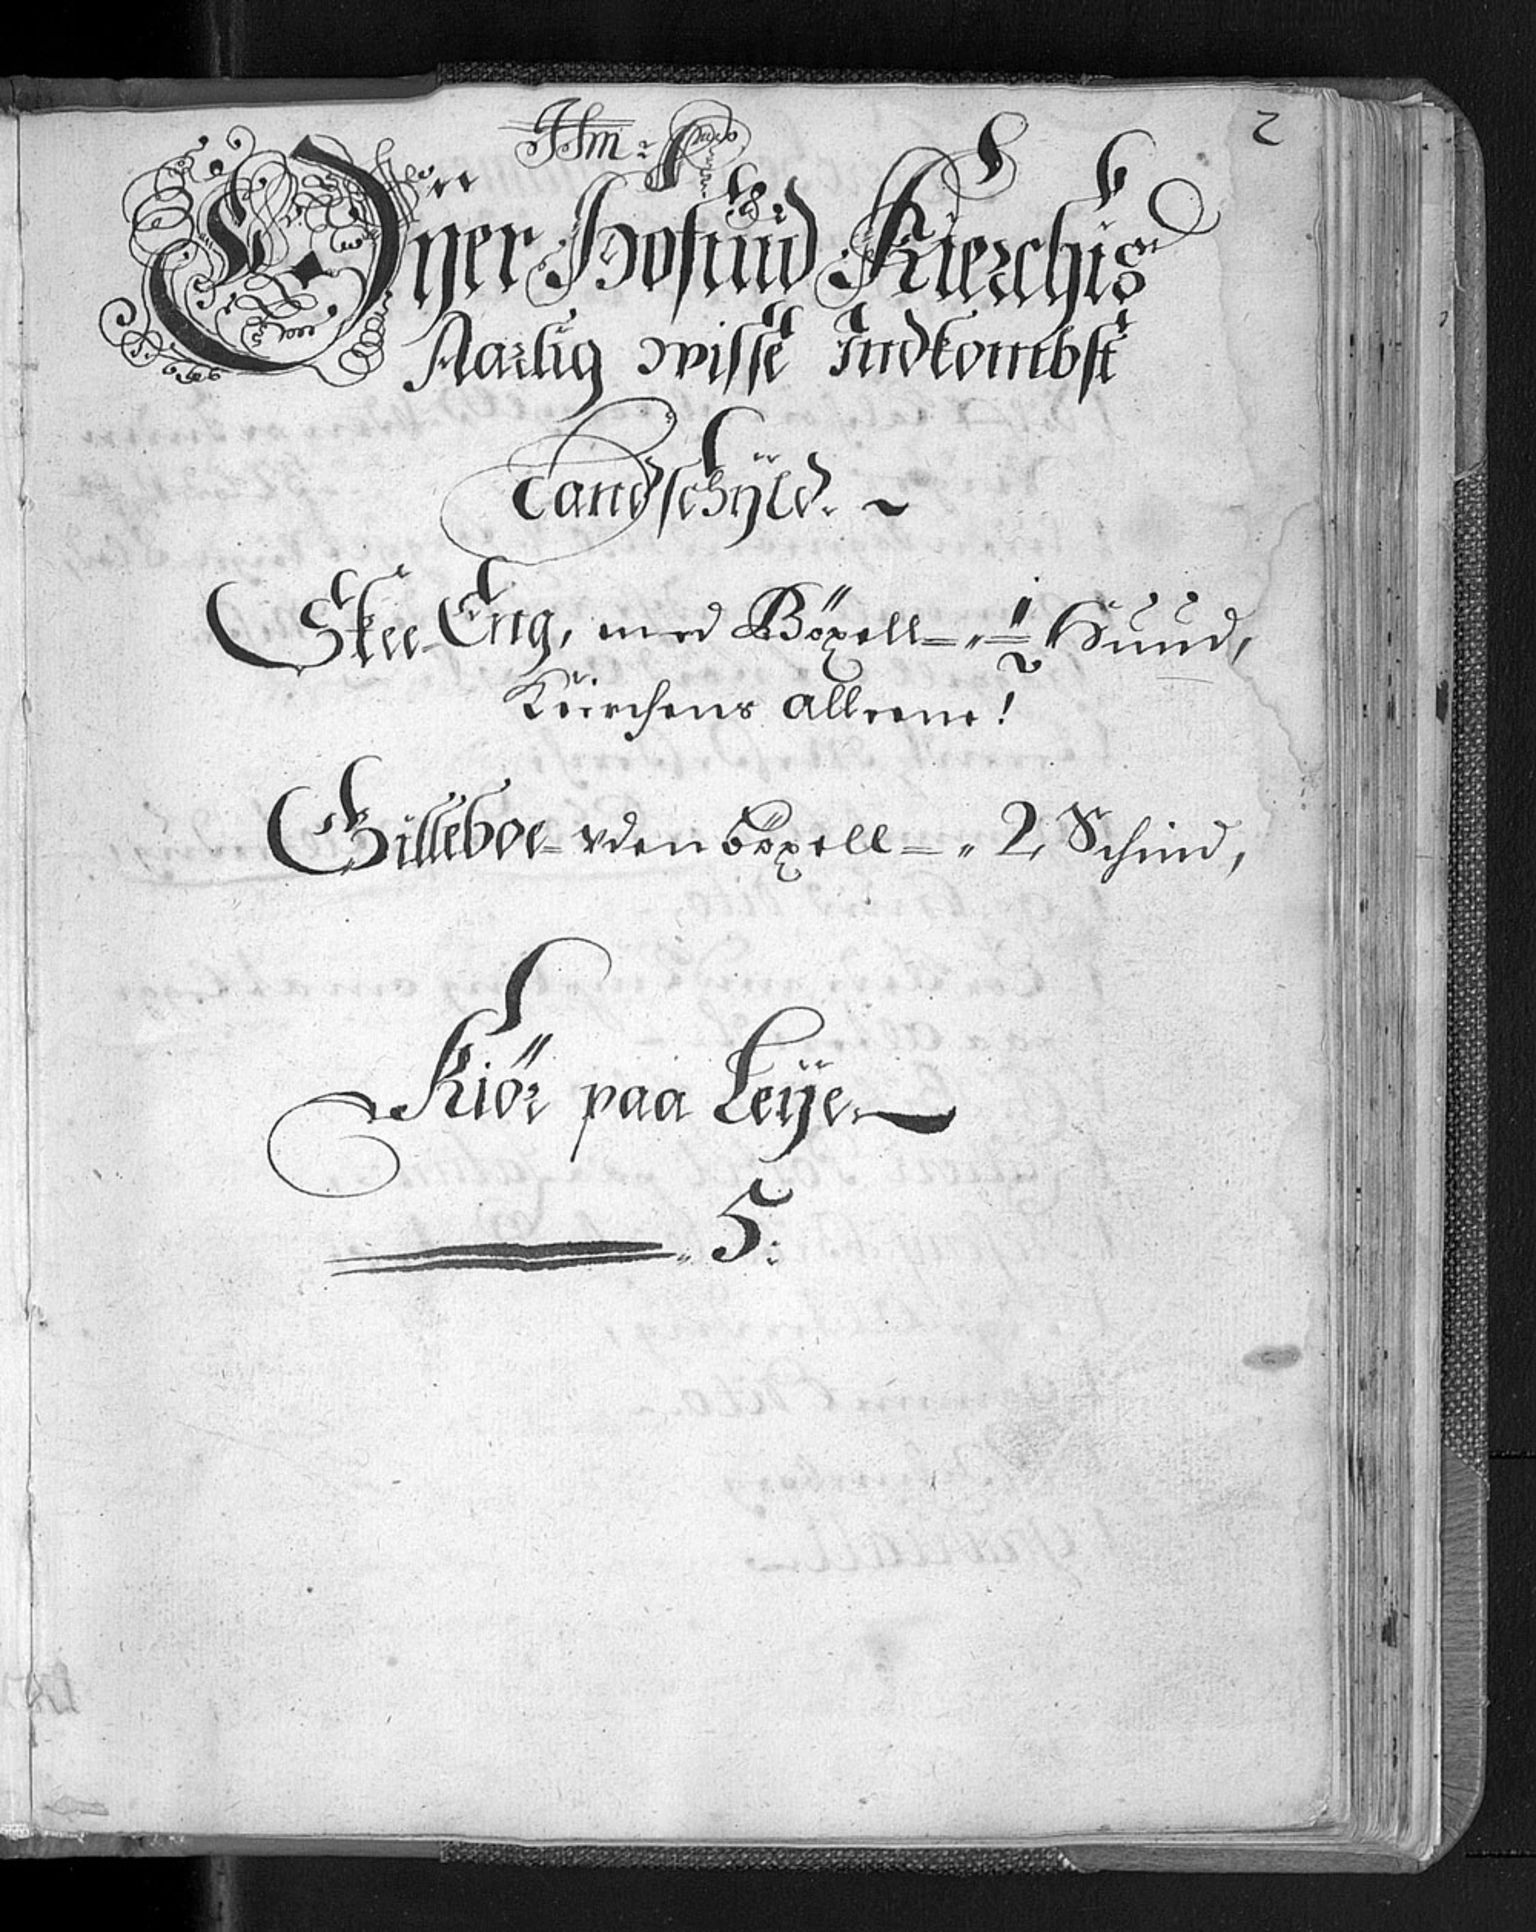 2
Öÿer Hofuud Kierchis
Aarlig wisse Indkombst
Landschÿld.
Skee-Eng, med Böxell = 1/2 Huud,
Kierchens alleene!
Gilleboe = vden böxell = 2, Schind,
Kiör paa Leÿe
5: